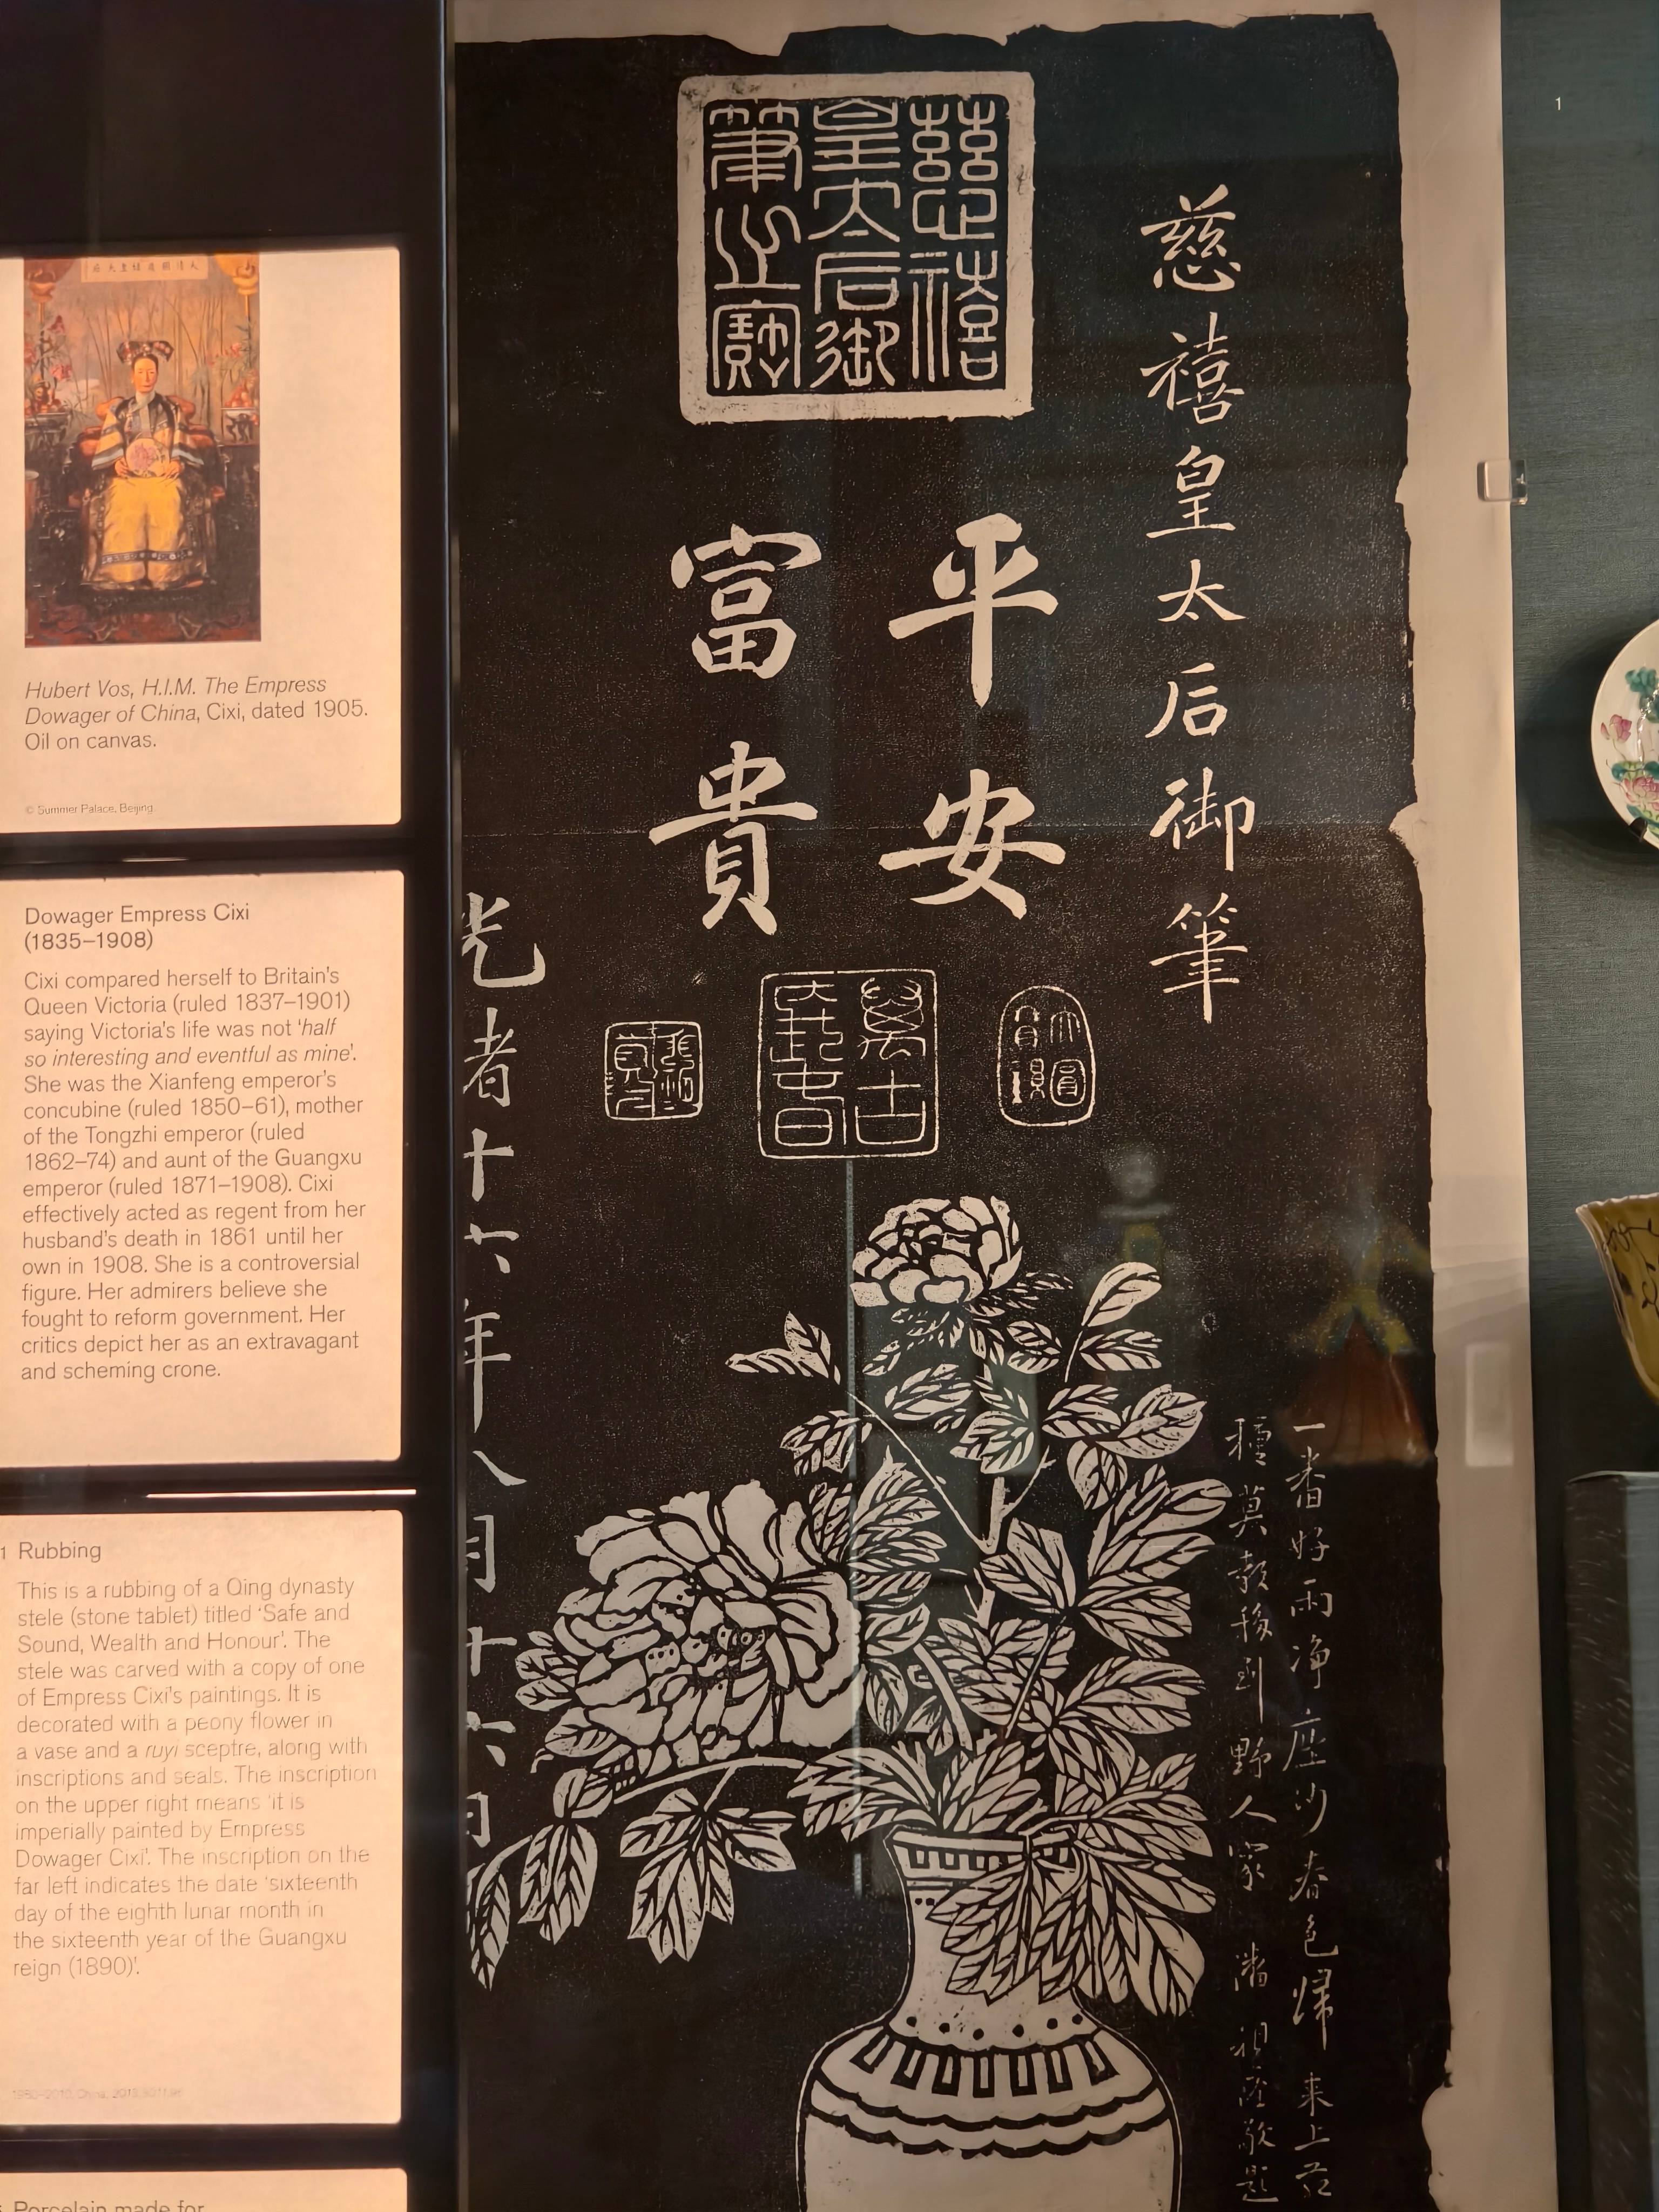 Hubert Vos, H.I.M. The Empress
Dowager of China, Cixi, dated 1905.
Oil on canvas.
© Summer Palace, Beijing
Dowager Empress Cixi
(1835–1908)
Cixi compared herself to Britain's
Queen Victoria (ruled 1837–1901)
saying Victoria's life was not 'half
so interesting and eventful as mine'.
She was the Xianfeng emperor's
concubine (ruled 1850–61), mother
of the Tongzhi emperor (ruled
1862–74) and aunt of the Guangxu
emperor (ruled 1871–1908). Cixi
effectively acted as regent from her
husband's death in 1861 until her
own in 1908. She is a controversial
figure. Her admirers believe she
fought to reform government. Her
critics depict her as an extravagant
and scheming crone.
1 Rubbing
This is a rubbing of a Qing dynasty
stele (stone tablet) titled 'Safe and
Sound, Wealth and Honour'. The
stele was carved with a copy of one
of Empress Cixi's paintings. It is
decorated with a peony flower in
a vase and a ruyi sceptre, along with
inscriptions and seals. The inscription
on the upper right means 'it is
imperially painted by Empress
Dowager Cixi'. The inscription on the
far left indicates the date 'sixteenth
day of the eighth lunar month in
the sixteenth year of the Guangxu
reign (1890)'.
Porcelain made for
慈禧皇太后御筆
慈禧
皇太后御
筆之寶
平安
富貴
萬古
光者十六年八月十六日
一番好雨淨塵沙春色歸來上苑
種莫教移到野人家 潘祖蔭敬題
1